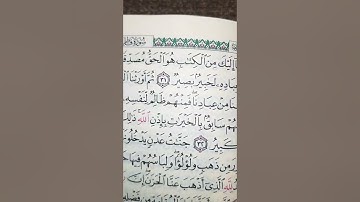 إِلَيْكَ مِنَ ٱلْكِتَٰبِ هُوَ ٱلْحَقُّ مُصَدِّقًا
بِعِبَادِهِۦ لَخَبِيرٌۢ بَصِيرٌ ٣١ ثُمَّ أَوْرَثْنَا
مِنْ عِبَادِنَا فَمِنْهُمْ ظَالِمٌ لِّنَفْسِهِۦ
سَابِقٌۢ بِٱلْخَيْرَٰتِ بِإِذْنِ ٱللَّهِ ذَٰلِكَ
كَبِيرُ ٣٢ جَنَّٰتُ عَدْنٍ يَدْخُلُونَ
مِن ذَهَبٍ وَلُؤْلُؤًا وَلِبَاسُهُمْ فِيهَا
لِلَّهِ ٱلَّذِىٓ أَذْهَبَ عَنَّا ٱلْحَزَنَ إِنَّ
مِن فَضْلِهِ